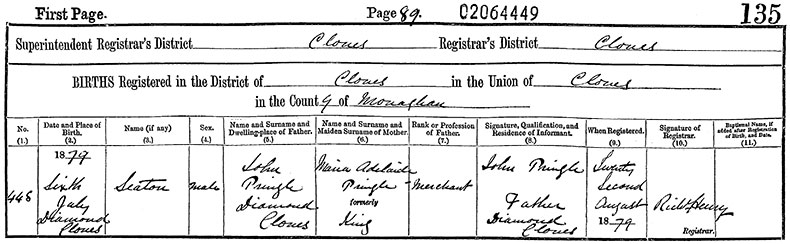 First Page. Page 89. 02064449 135
Superintendent Registrar's District Clones Registrar's District Clones
BIRTHS Registered in the District of Clones in the Union of Clones
in the County of Monaghan
No.
(1.)
Date and Place of
Birth.
(2.)
Name (if any)
(3.)
Sex.
(4.)
Name and Surname and
Dwelling-place of Father.
(5.)
Name and Surname and
Maiden Surname of Mother.
(6.)
Rank or Profession
of Father.
(7.)
Signature, Qualification, and
Residence of Informant.
(8.)
When Registered.
(9.)
Signature of
Registrar.
(10.)
Baptismal Name, if
added after Registration
of Birth, and Date.
(11.)
448
1879
Sixth
July
Diamond
Clones
Seaton
male
John
Pringle
Diamond
Clones
Maria Adelaide
Pringle
formerly
King
Merchant
John Pringle
Father
Diamond
Clones
Twenty
Second
August
1879
Richd Henry
Registrar.